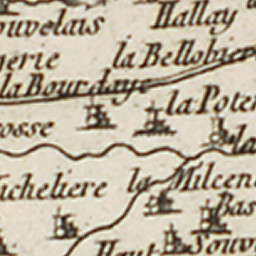 ouvelais
Hallay
gerie
la Bellobier
la Bourdaye
la Poter
osse
la
icheliere
la Milcen
Bas
Haut
Souv